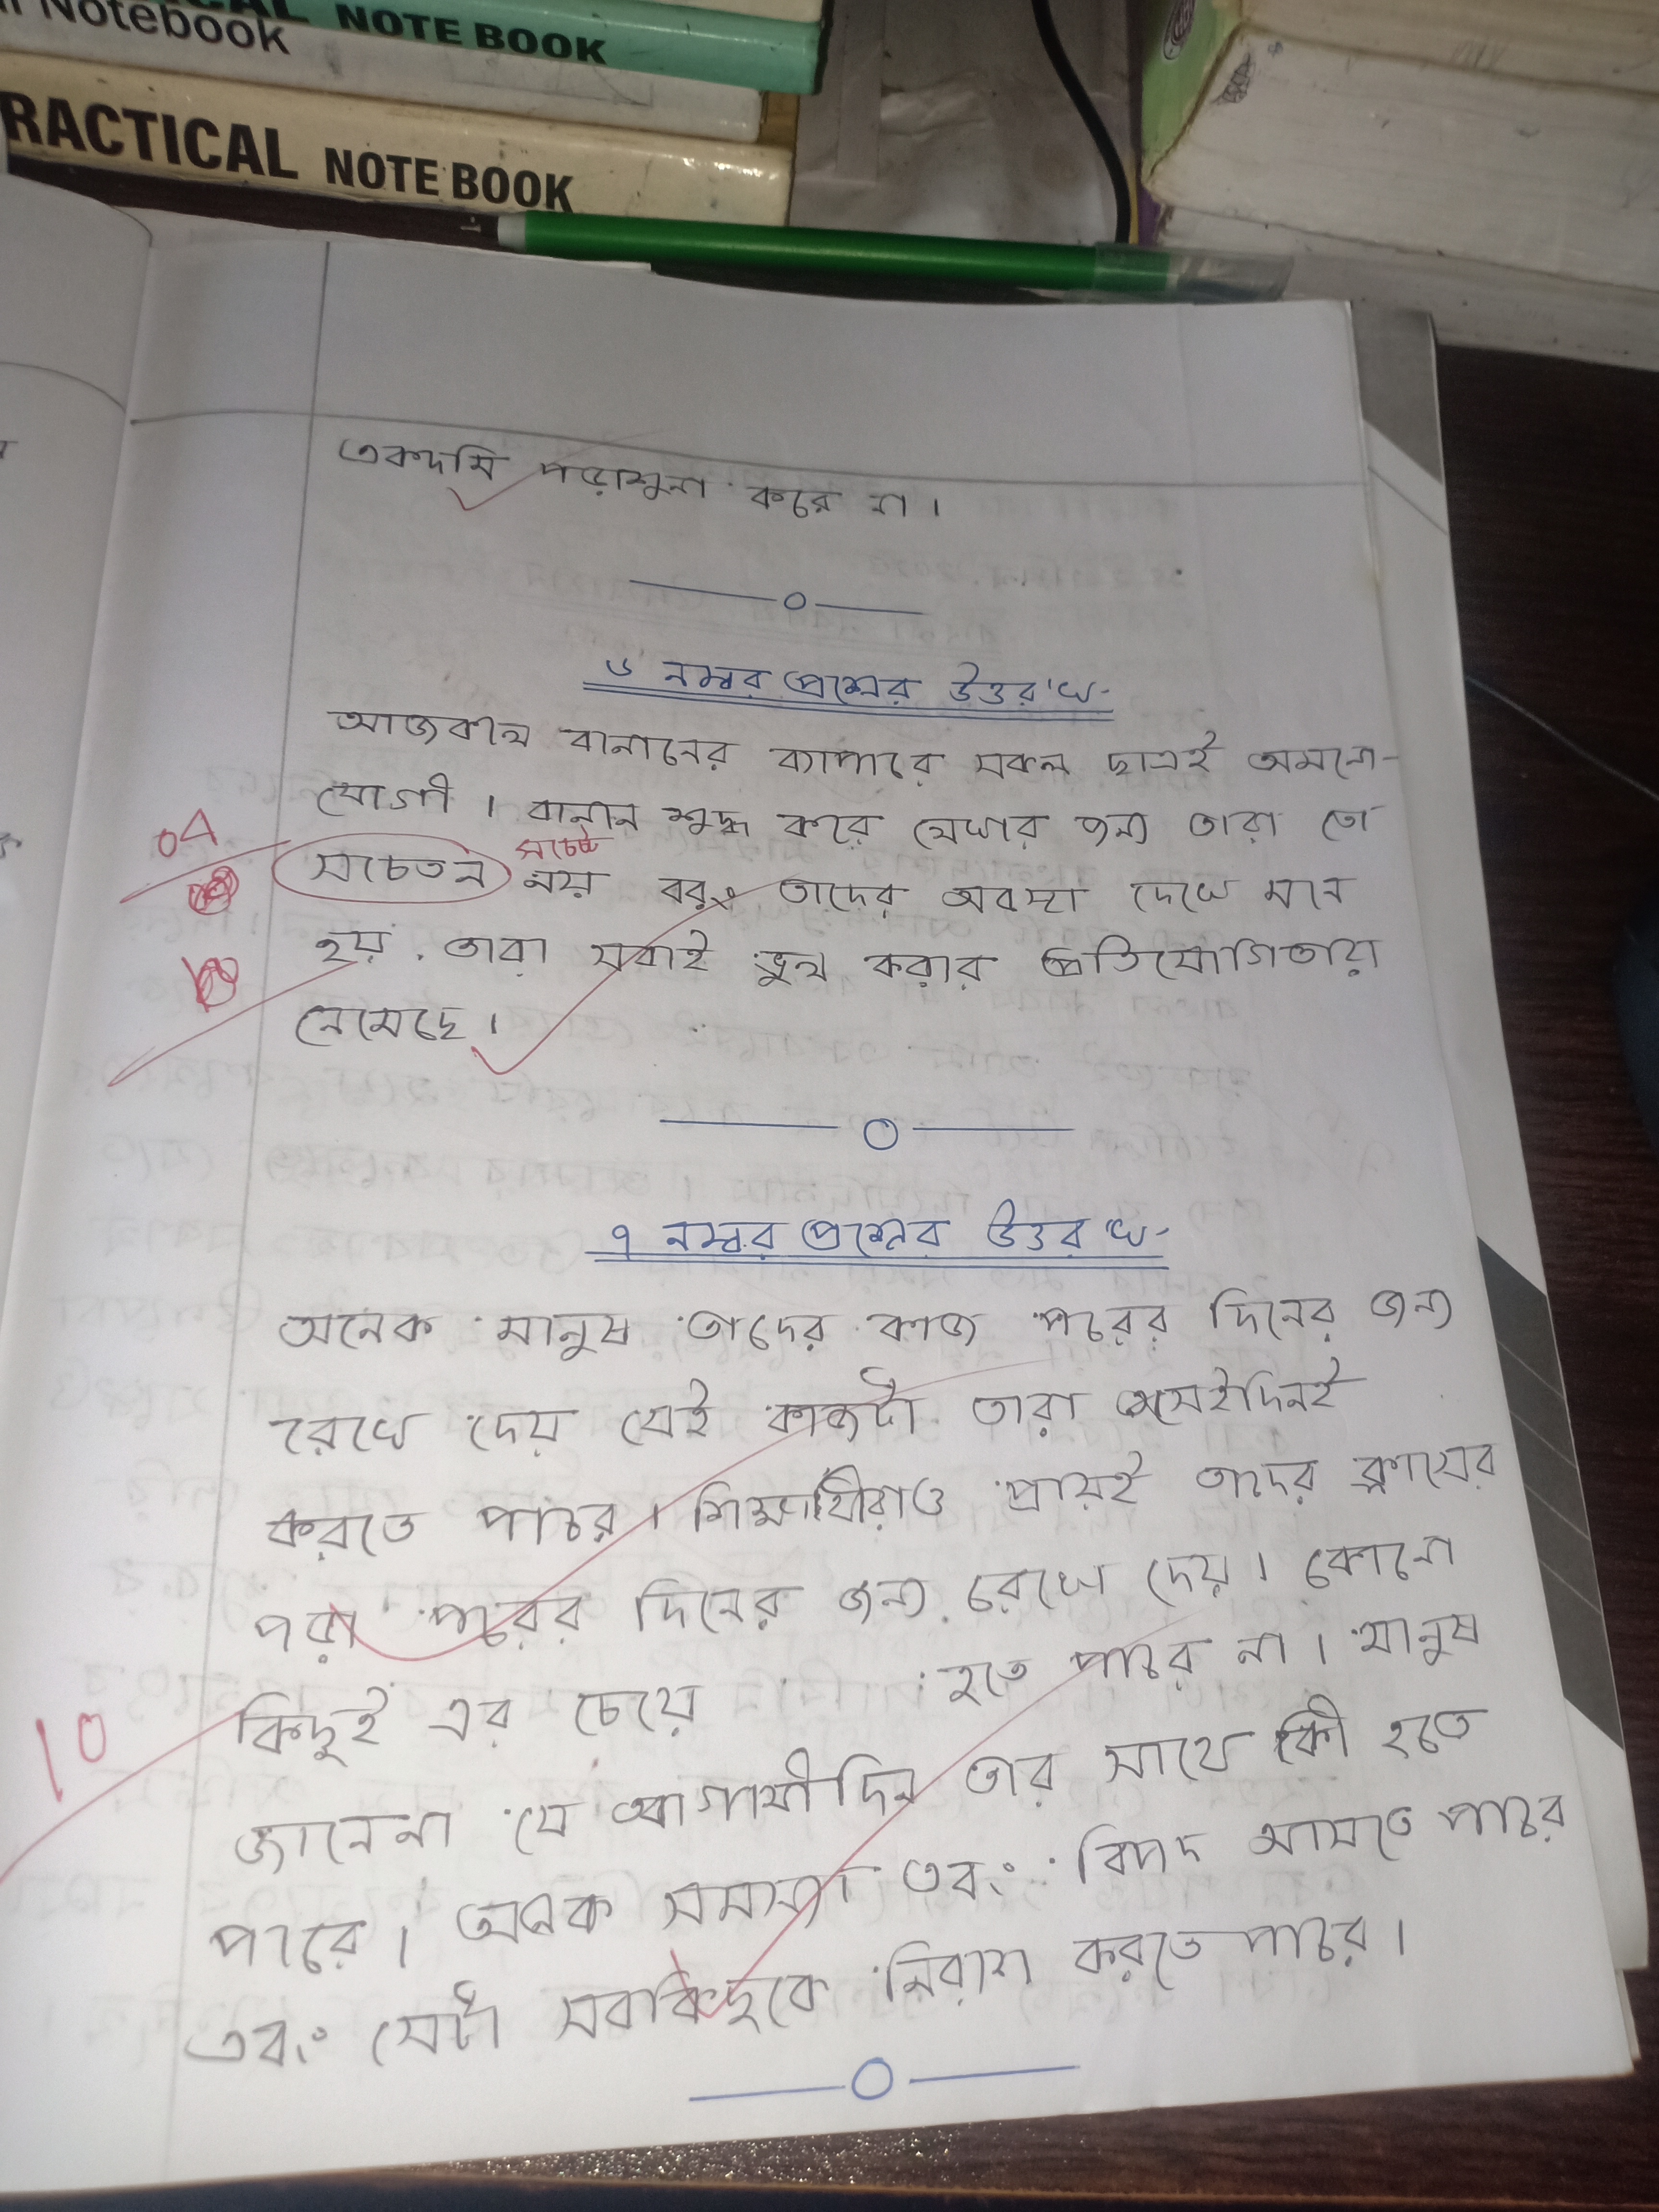 CAL NOTE BOOK
Notebook
RACTICAL NOTE BOOK
একদমি পড়াশুনা করে না।
৬ নম্বর প্রশ্নের উত্তর ঃ-
আজকাল বানানের ব্যাপারে সকল ছাত্রই অমনো-
যোগী। বানান শুদ্ধ করে লেখার জন্য তারা তো
04
সচেতন সচেষ্ট নয় বরং তাদের অবস্থা দেখে মনে
হয় তারা সবাই ভুল করার প্রতিযোগিতায়
নেমেছে।
৭ নম্বর প্রশ্নের উত্তর ঃ-
অনেক মানুষ তাদের কাজ পরের দিনের জন্য
রেখে দেয় যেই কাজটা তারা সেইদিনই
করতে পারে। শিক্ষার্থীরাও প্রায়ই তাদের ক্লাসের
পরা পরের দিনের জন্য রেখে দেয়। কোনো
কিছুই এর চেয়ে হতে পারে না। মানুষ
10
জানেনা যে আগামীদিন তার সাথে কী হতে
পারে। অনেক সমস্যা এবং বিপদ আসতে পারে
এবং সেটা সবকিছুকে নিরাশ করতে পারে।